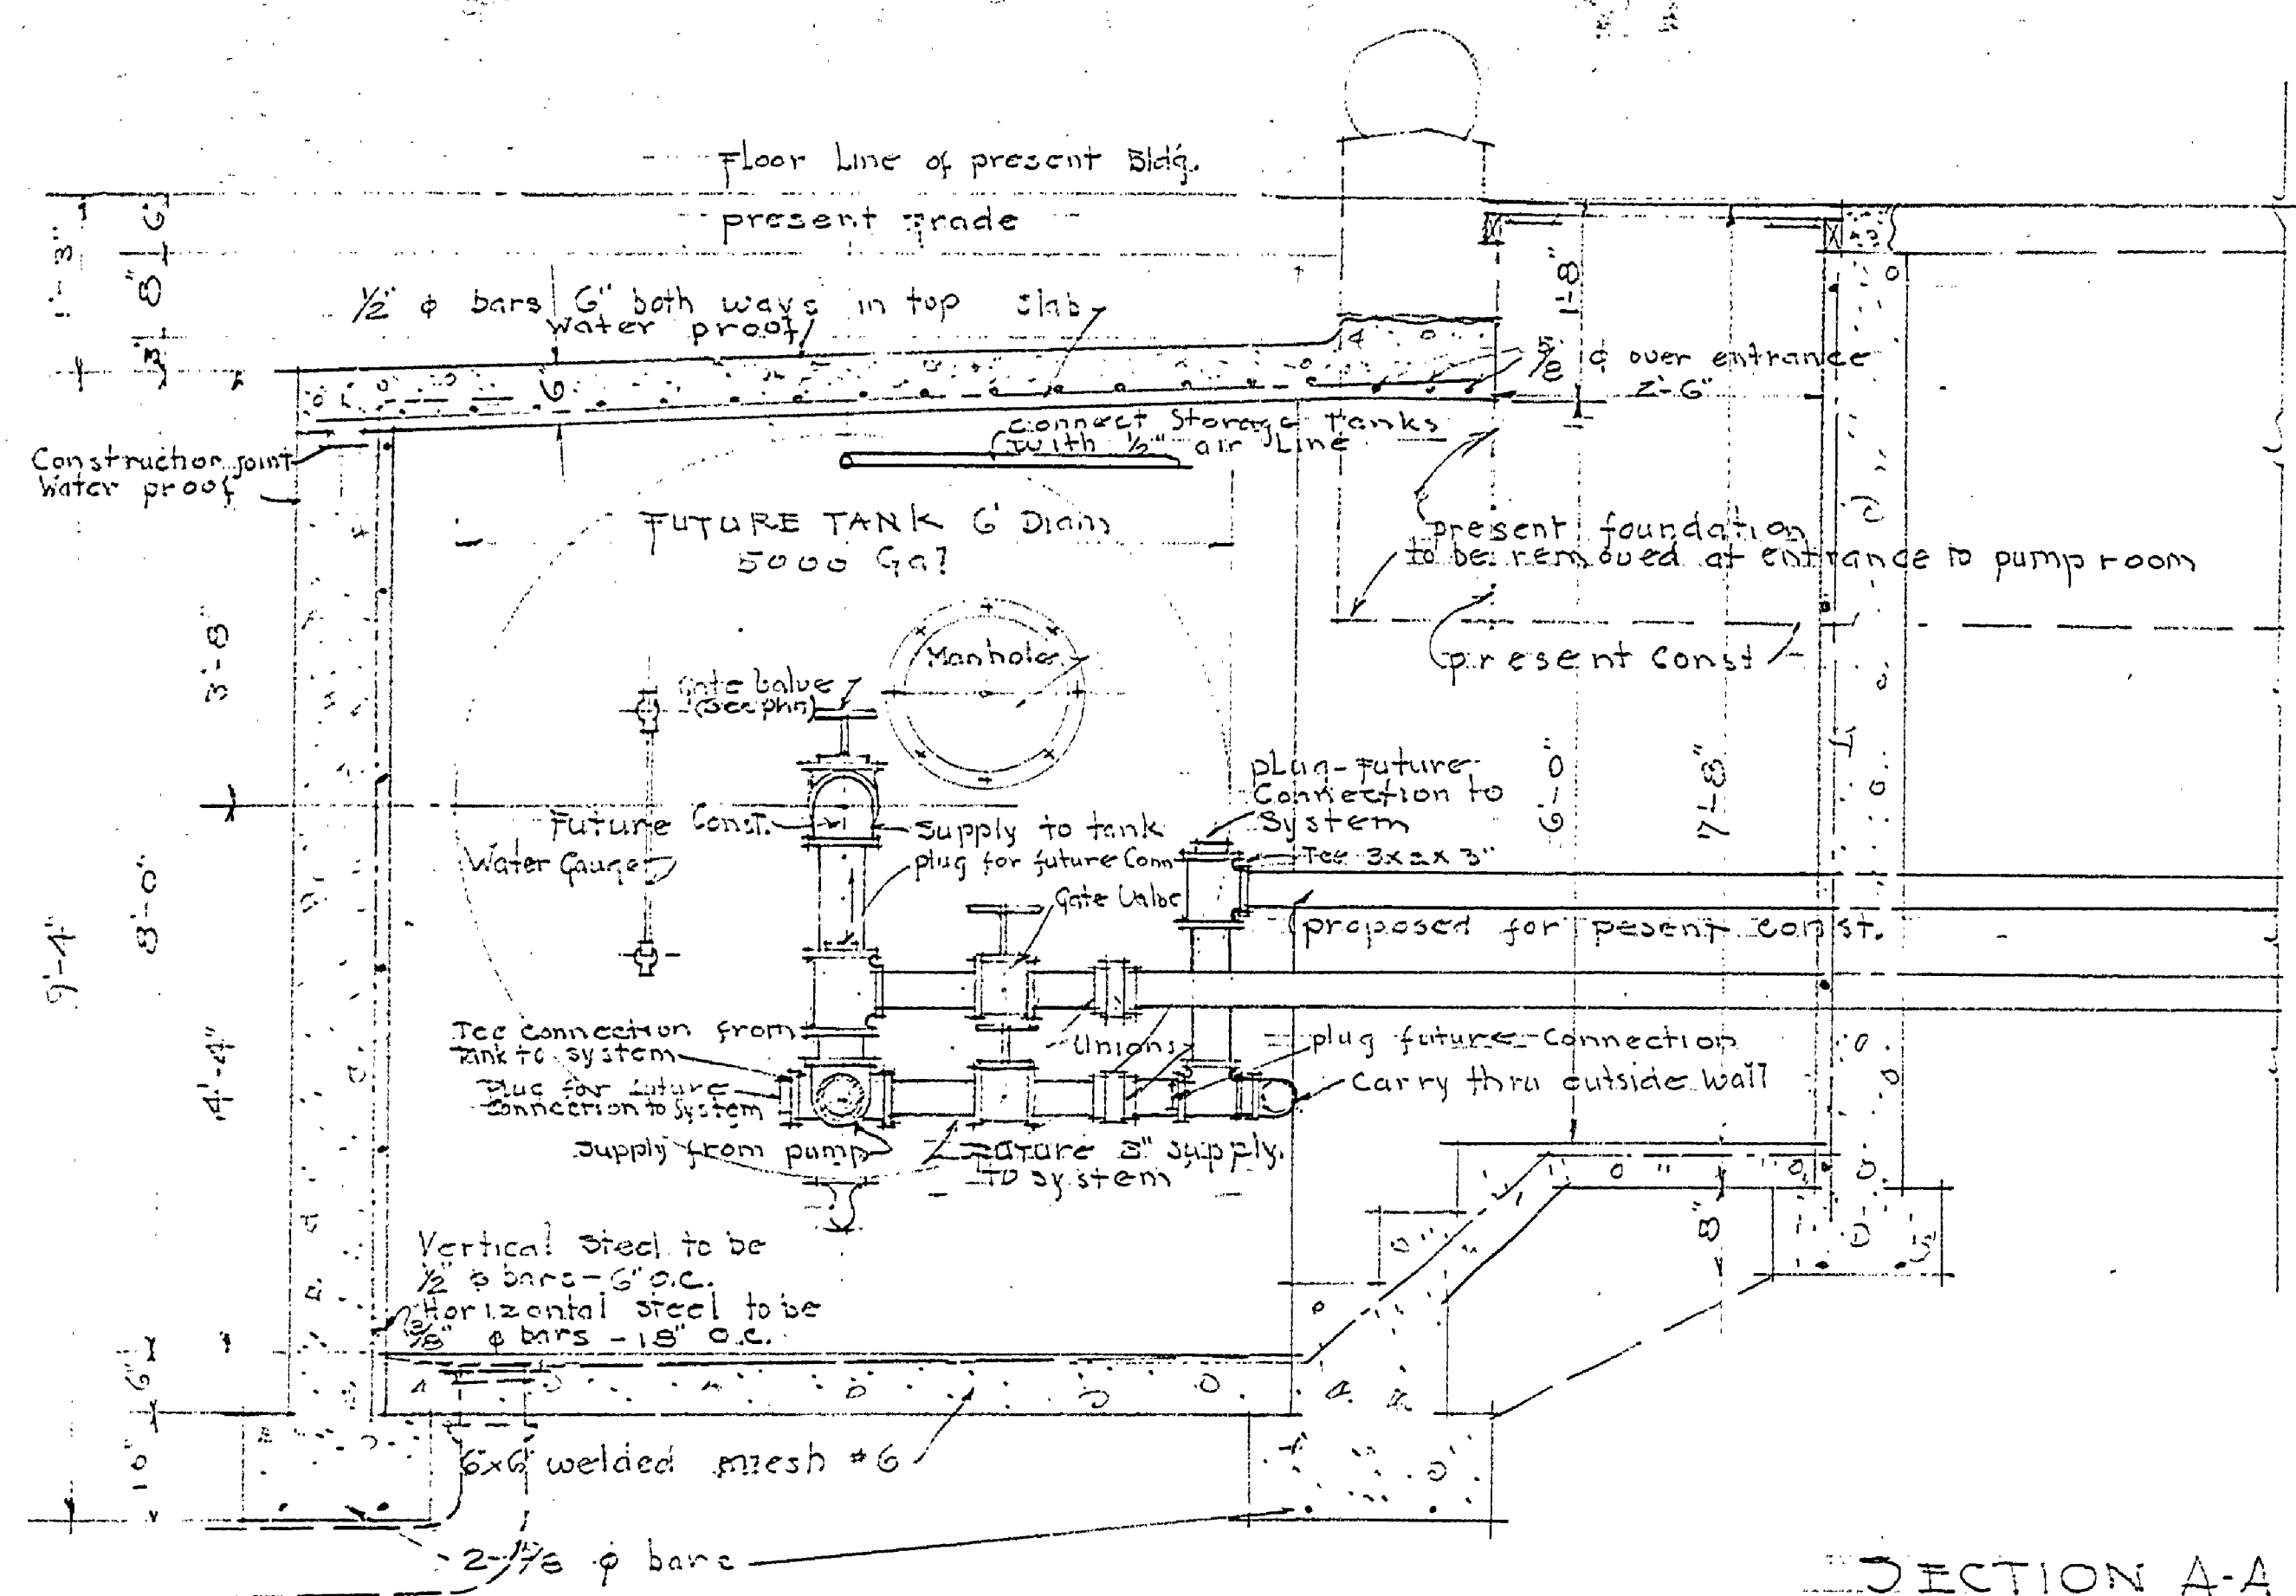 Floor Line of present Bldg.
present grade
1'-3"
6"
8"
3"
1/2" φ bars 6" both ways in top slab
water proof
6"
1'-8"
5/8 φ over entrance
2'-6"
connect Storage Tanks
with 1/2" air Line
Construction joint
Water proof
FUTURE TANK 6' Diam
5000 Gal
present foundation
to be removed at entrance to pump room
present Const
3'-8"
Manhole
Gate Valve
Future Const.
Supply to tank
plug for future Conn
Water Gauge
plug-Future
Connection to
System
Tee 3x2x3"
6'-0"
7'-8"
Gate Valve
proposed for pesent const.
9'-4"
8'-0"
4'-4"
Tee connection from
tank to system
Plug for future
connection to system
Unions
plug future-Connection
Carry thru outside wall
Supply from pump
Future 3" supply.
to system
8"
Vertical Steel to be
1/2" φ bars-6" o.c.
Horizontal steel to be
3/8" φ bars - 18" o.c.
6"
10"
6x6 welded mesh #6
2-5/8 φ bars
SECTION A-A